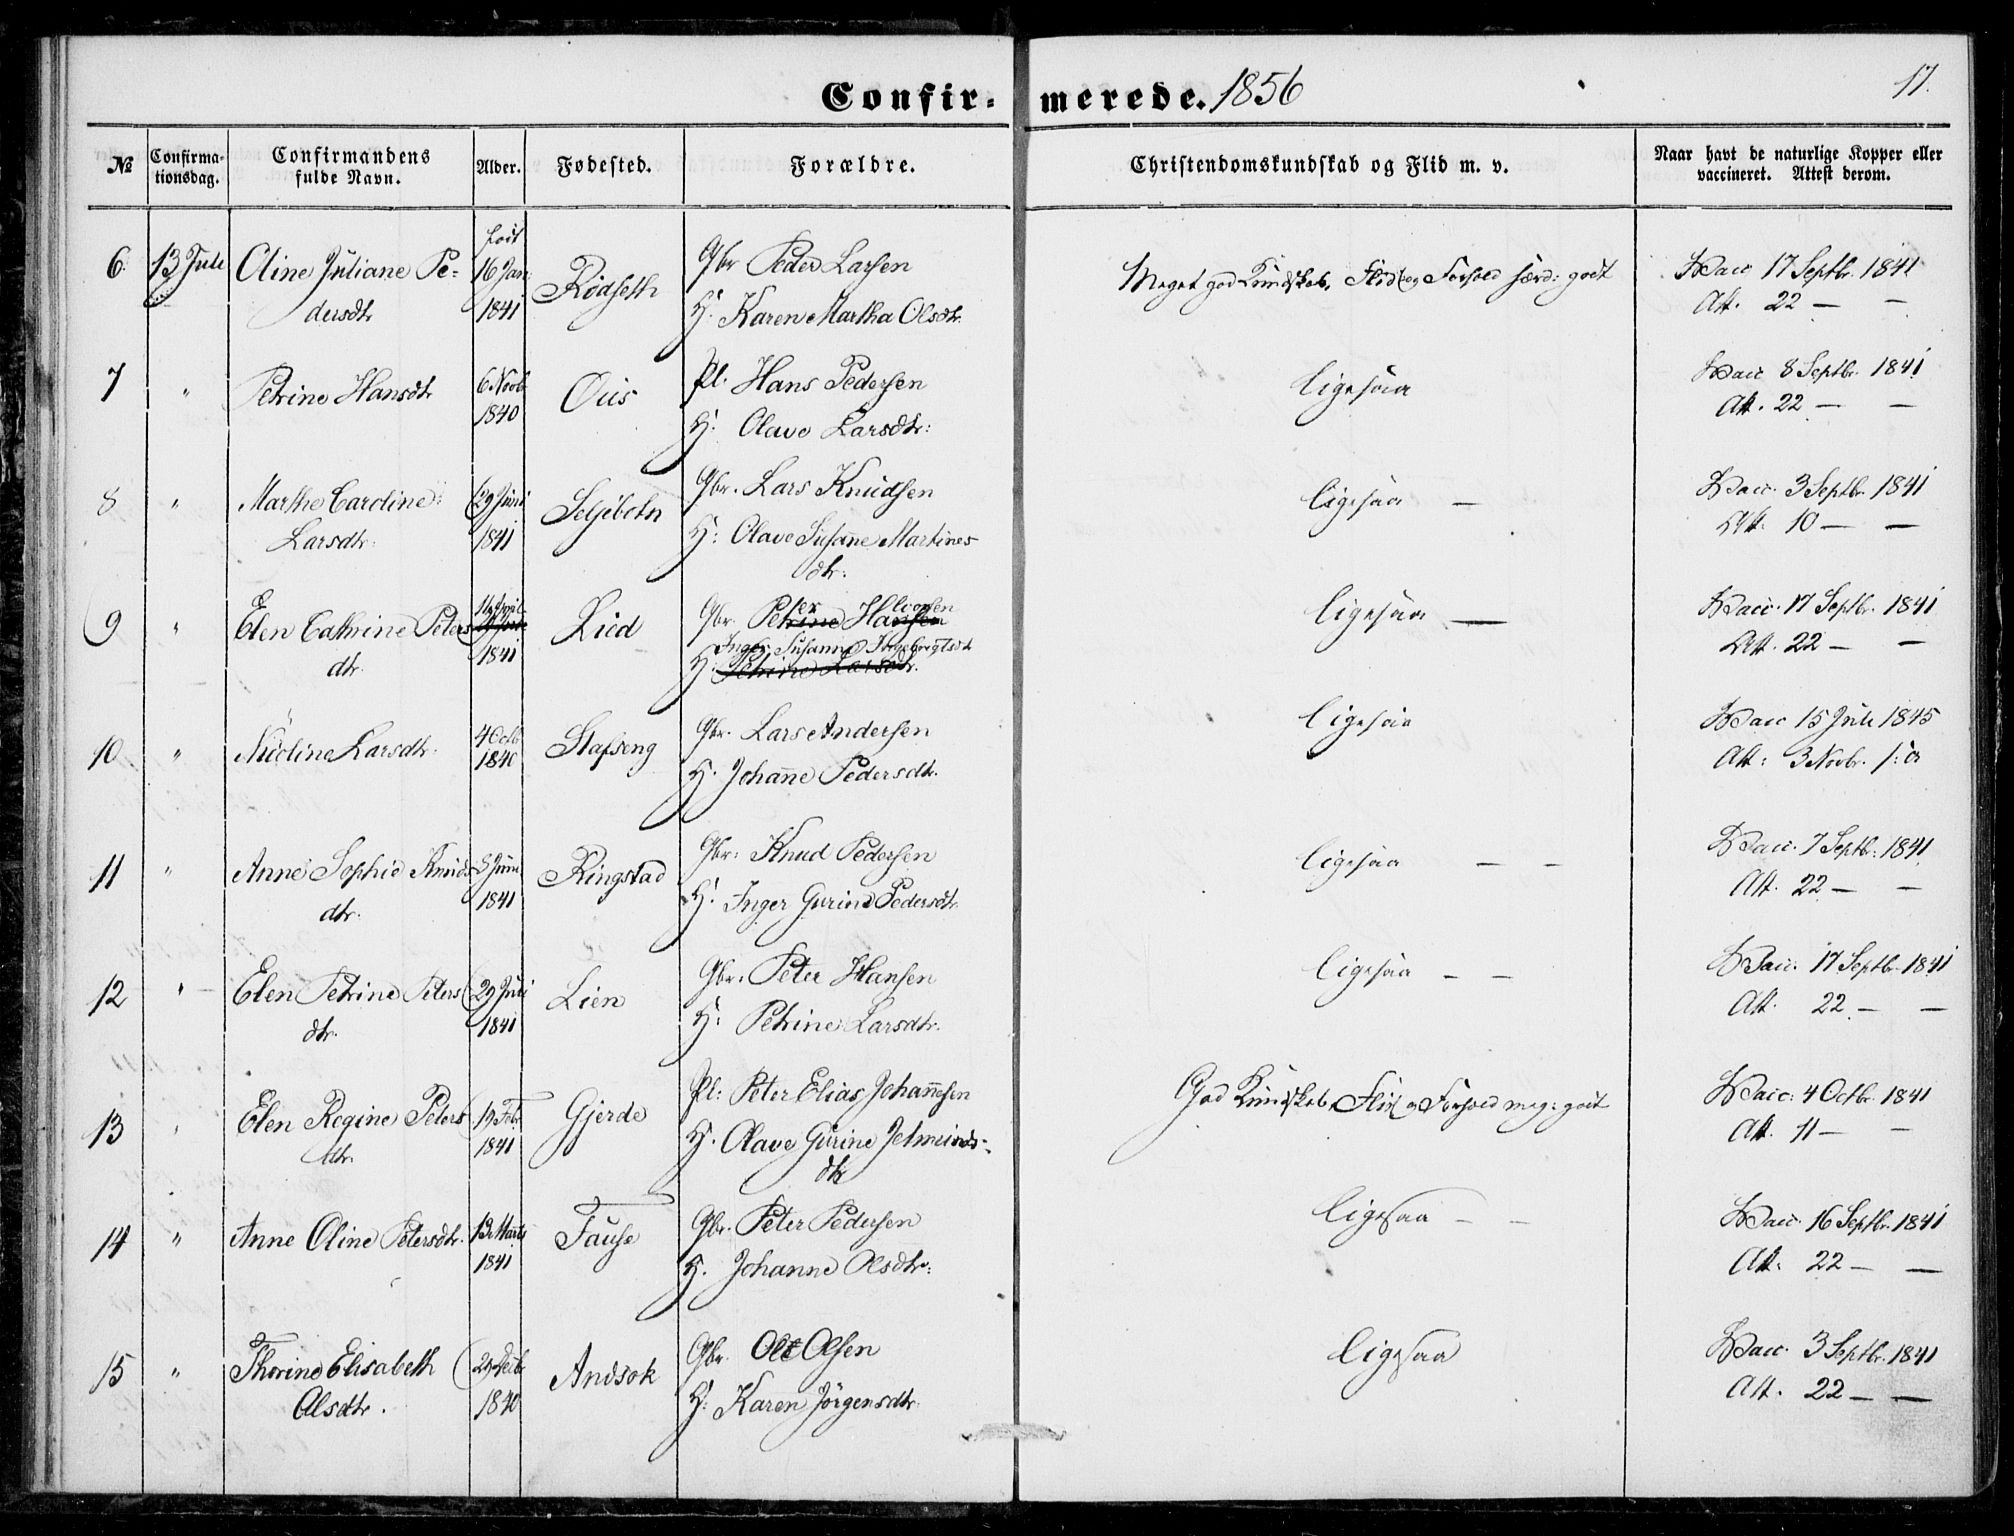 Confirmerede. 1856
17.
№ Confirmationsdag. Confirmandens fulde Navn. Alder. Fødested. Forældre. Christendomskundskab og Flid m. v. Naar havt de naturlige Kopper eller vaccineret. Attest derom.
født
6. 13 Juli Oline Juliane Pe- 16 Jan: Rødseth Gbr Peder Larsen Meget god Kundskab, Flid og Forhold særd: godt Vacc 17 Septbr. 1841
dersdtr 1841 H. Karen Martha Olsdtr. Att. 22 — —
7 " Petrine Hansdtr 6 Novb. Ous Pl. Hans Pedersen ligesaa Vacc 8 Septbr. 1841
1840 H: Olave Larsdtr: Att. 22 — —
8 " Marthe Caroline 29 Juni Seljebotn Gbr. Lars Knudsen ligesaa — Vacc. 3 Septbr. 1841
Larsdtr. 1841 H: Olave Susanne Martines- Att. 10 — —
dtr.
9 " Elen Cathrine Peters 11 April Lied Gbr. Peter Halvorsen ligesaa — Vacc. 17 Septbr. 1841
dtr. 1841 H. Inger Susanne Ingebrigtsdt Att. 22 — —
Petrine Larsdtr.
10 " Nicoline Larsdtr. 4 Octb Stafseng Gbr. Lars Andersen ligesaa Vacc 15 Juli 1845
1840 H. Johanne Pedersdtr. Att: 3 Novbr. s: a
11 " Anne Sophie Knuds 5 Juni Ringstad Gbr: Knud Pedersen ligesaa — — Vacc. 7 Septbr. 1841
dtr. 1841 H. Inger Gurine Pedersdtr. Att. 22 — —
12 " Elen Petrine Peters 29 Juli Lien Gbr. Peter Hansen ligesaa — — Vacc. 17 Septbr. 1841
dtr. 1841 H: Petrine Larsdtr. Att. 22 — —
13 " Elen Regine Peters 19 Feb. Gjerde Pl: Peter Elias Johannesen God Kundskab, Flid og Forhold meg: godt Vacc: 4 Octbr. 1841
dtr. 1841 H. Olave Gurine Jetmunds- Att. 11 — —
dtr
14 " Anne Oline Petersdtr. 13 Marts Tause Gbr. Peter Pedersen ligesaa — — Vacc. 16 Septbr. 1841
1841 H. Johanne Olsdtr: Att. 22 — —
15 " Thorine Elisabeth 29 Decb. Andsok Gbr. Ole Olsen ligesaa Vacc. 3 Septbr. 1841
Olsdtr. 1840 H: Karen Jörgensdtr Att. 22 — —